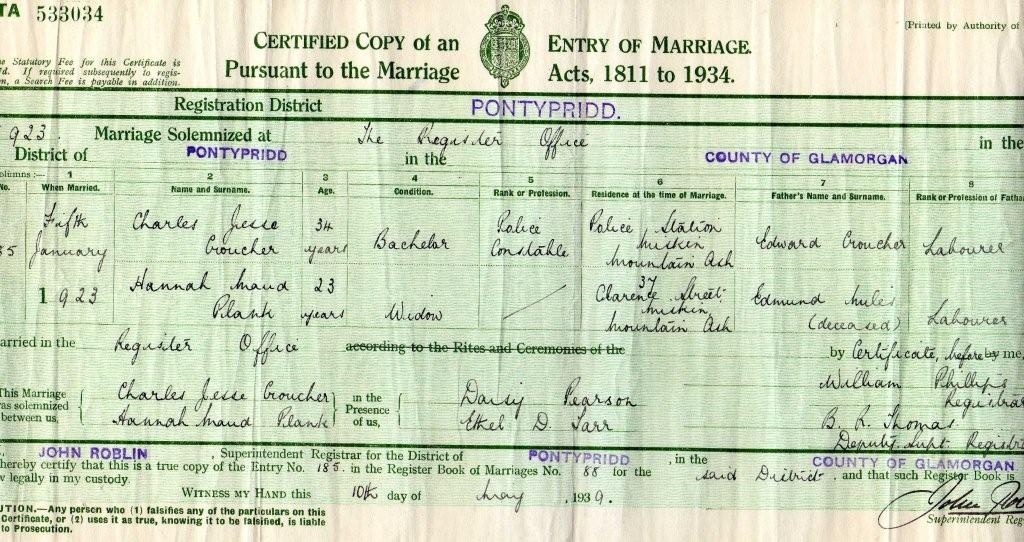 TA 533034
[Printed by Authority of
CERTIFIED COPY of an ENTRY OF MARRIAGE.
Pursuant to the Marriage Acts, 1811 to 1934.
e Statutory Fee for this Certificate is
d. If required subsequently to regis-
n, a Search Fee is payable in addition.
Registration District PONTYPRIDD.
923. Marriage Solemnized at The Register Office in the
District of PONTYPRIDD in the COUNTY OF GLAMORGAN
olumns :— 1 2 3 4 5 6 7 8
No. When Married. Name and Surname. Age. Condition. Rank or Profession. Residence at the time of Marriage. Father's Name and Surname. Rank or Profession of Fathe
Fifth Charles Jesse 34 Police Police Station
85 January Croucher years Bachelor Constable Miskin Edward Croucher Labourer
Mountain Ash
1923 Hannah Maud 23 37 Clarence Street Edmund Miles
Plank years Widow Miskin (deceased) Labourer
Mountain Ash
arried in the Register Office according to the Rites and Ceremonies of the by Certificate, before by me,
This Marriage Charles Jesse Croucher in the Daisy Pearson William Phillips
as solemnized Presence Registrar
between us, Hannah Maud Plank of us, Ethel D. Tarr B. R. Thomas
Deputy Supt. Registr
JOHN ROBLIN, Superintendent Registrar for the District of PONTYPRIDD, in the COUNTY OF GLAMORGAN
hereby certify that this is a true copy of the Entry No. 185. in the Register Book of Marriages No. 88 for the said District, and that such Register Book is
w legally in my custody.
WITNESS MY HAND this 10th day of May, 1939.
UTION.—Any person who (1) falsifies any of the particulars on this
Certificate, or (2) uses it as true, knowing it to be falsified, is liable
to Prosecution.
John
Superintendent Reg